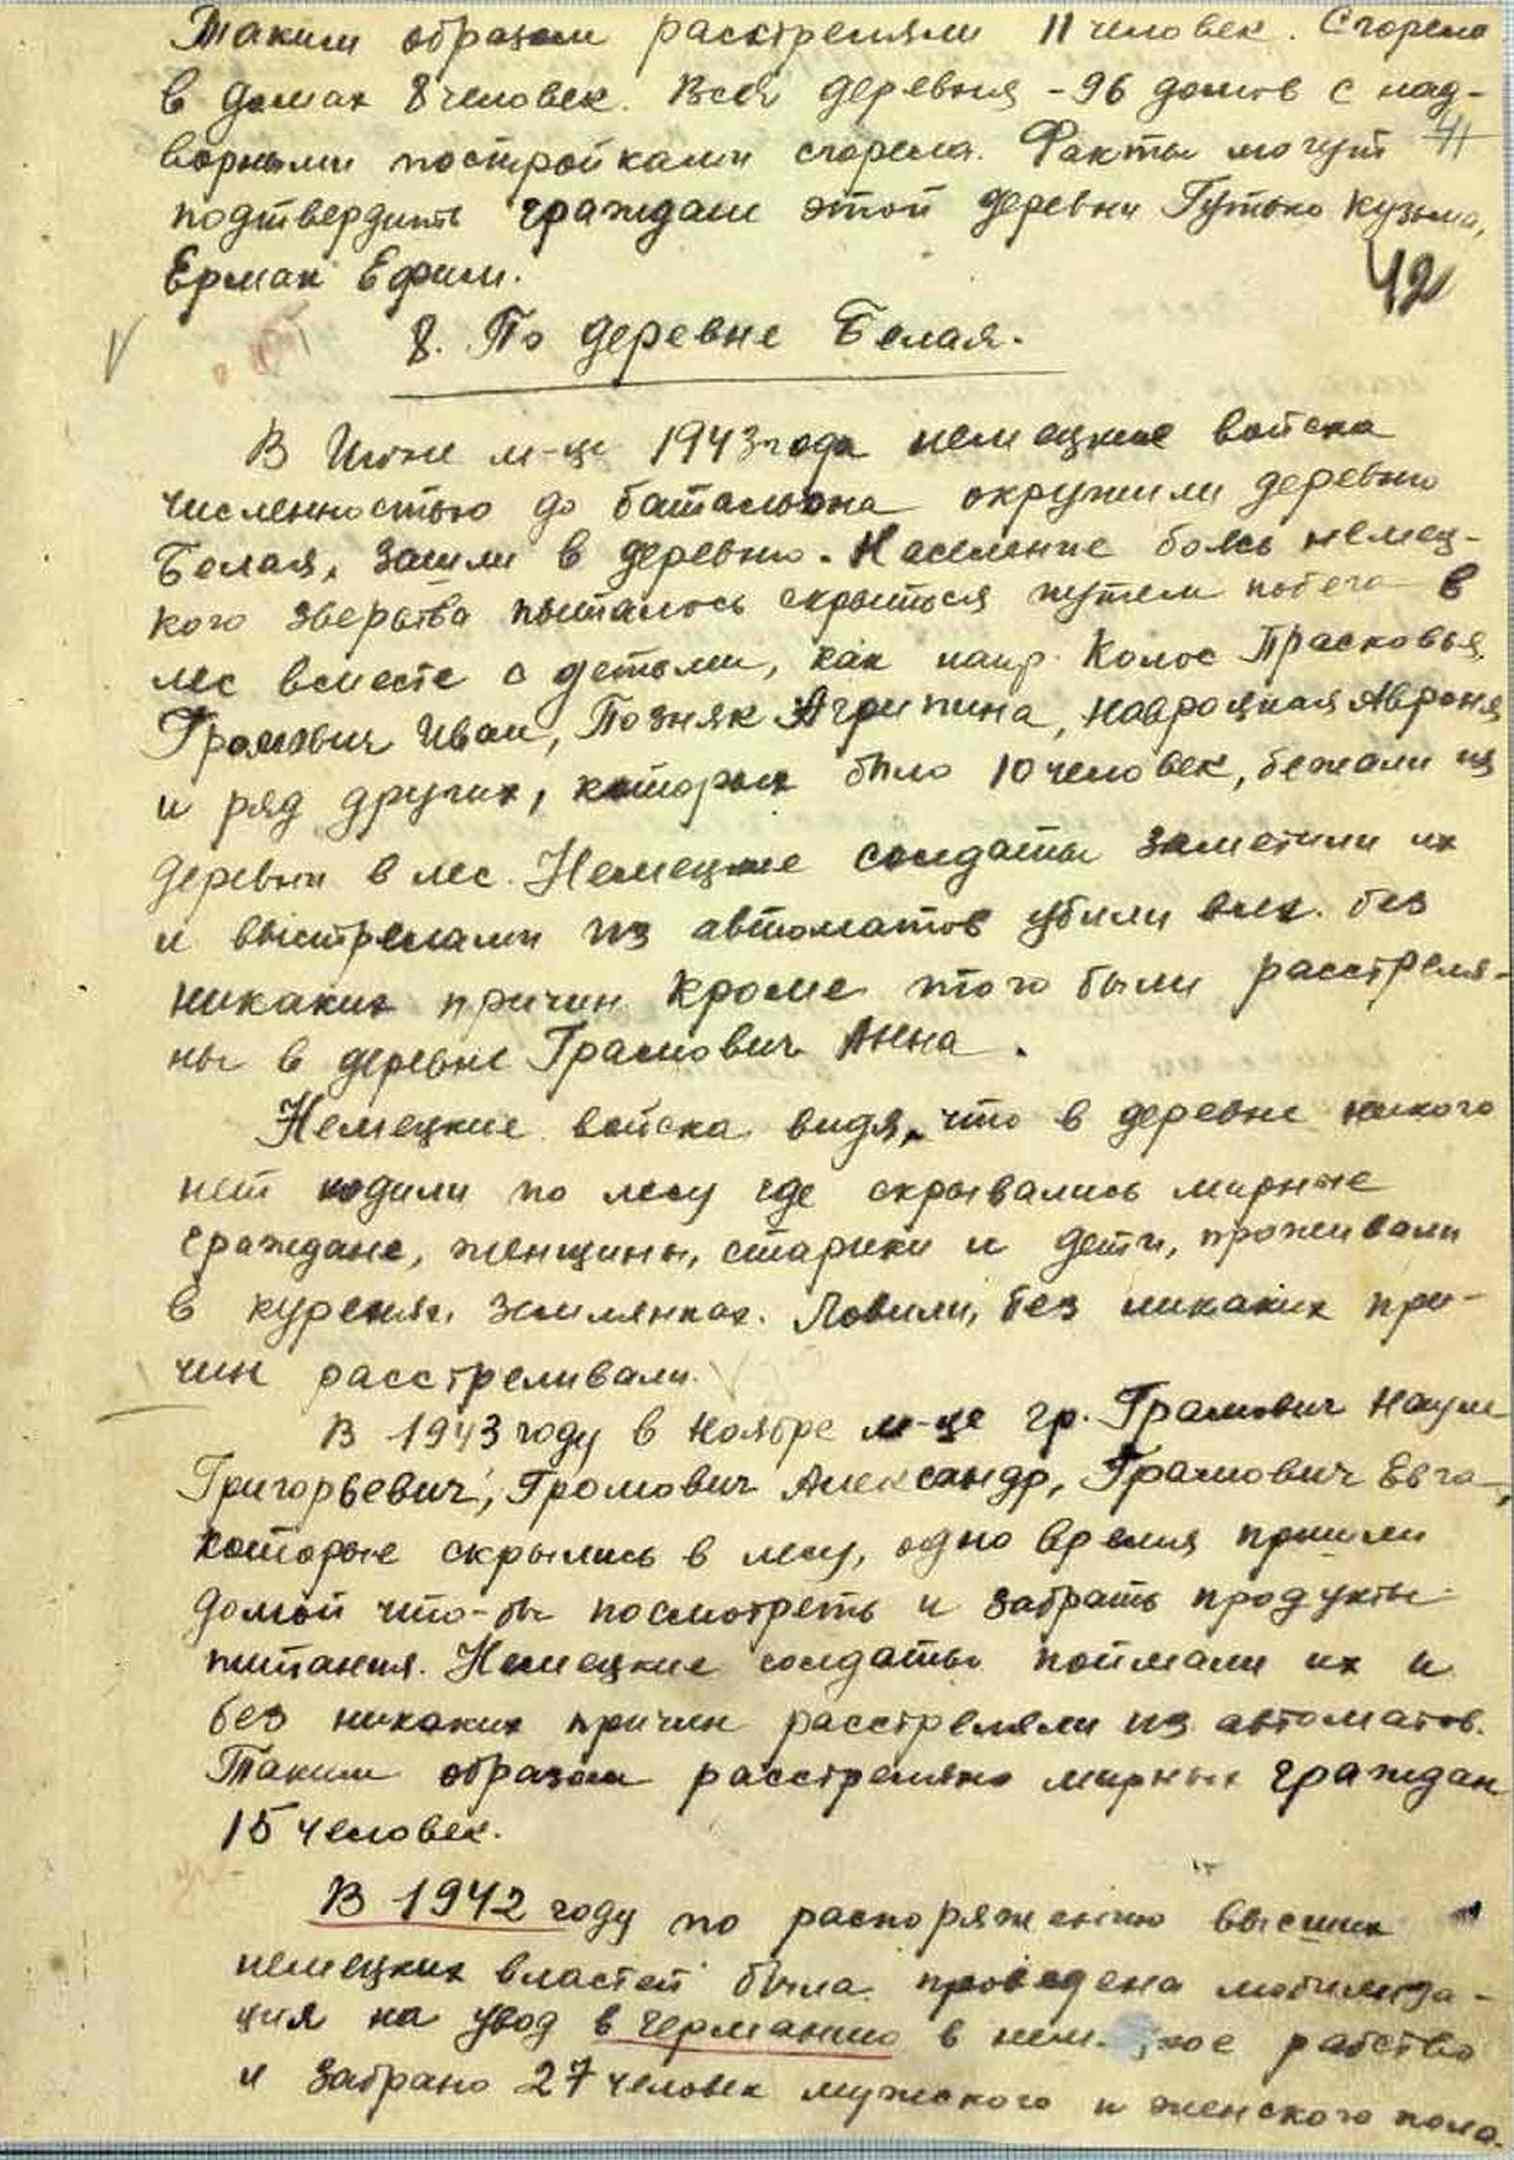 Таким образом расстреляли 11 человек. Сгорело
в домах 8 человек. Вся деревня - 96 домов с над-
ворными постройками сгорела. Факты могут 41
подтвердить граждане этой деревни Гутько Кузьма,
Ермак Ефим.
42
8. По деревне Белая.
В Июне м-це 1943 года немецкие войска
численностью до батальона окружили деревню
Белая, зашли в деревню. Население боясь немец-
кого зверства пыталось скрыться путем побега в
лес вместе с детьми, как напр. Колос Прасковья,
Громович Иван, Позняк Агрипина, Навроцкая Авроня
и ряд других, которых было 10 человек, бежали из
деревни в лес. Немецкие солдаты заметили их
и выстрелами из автоматов убили всех без
никаких причин. Кроме того были расстреля-
ны в деревне Грамович Анна.
Немецкие войска видя, что в деревне никого
нет ходили по лесу где скрывались мирные
граждане, женщины, старики и дети, проживали
в куренях, землянках. Ловили, без никаких при-
чин расстреливали.
В 1943 году в ноябре м-це гр. Грамович Наум
Григорьевич, Громович Александр, Грамович Евга,
которые скрылись в лесу, одно время пришли
домой что-бы посмотреть и забрать продукты
питания. Немецкие солдаты поймали их и
без никаких причин расстреляли из автоматов.
Таким образом расстреляно мирных граждан
15 человек.
В 1942 году по распоряжению высших
немецких властей была проведена мобилиза-
ция на увод в германию в нем. кое рабство
и забрано 27 человек мужского и женского пола.